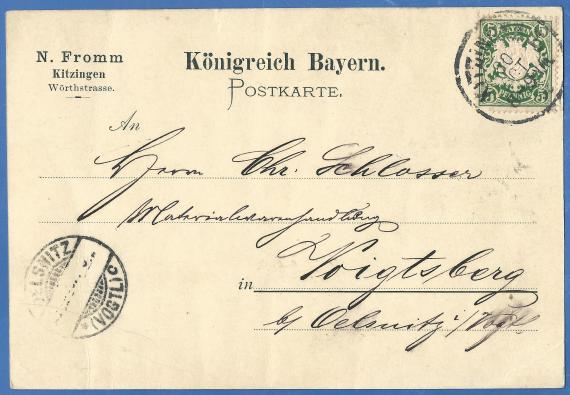 N. Fromm
Kitzingen
Wörthstrasse.
Königreich Bayern.
POSTKARTE.
BAYERN
5 5
PFENNIG
5 5
KITZINGEN
An
Herrn Chr. Schlosser
Materialwarenhandlung
in Voigtsberg
b/ Oelsnitz i/Vogtl.
OELSNITZ
(VOGTL.)